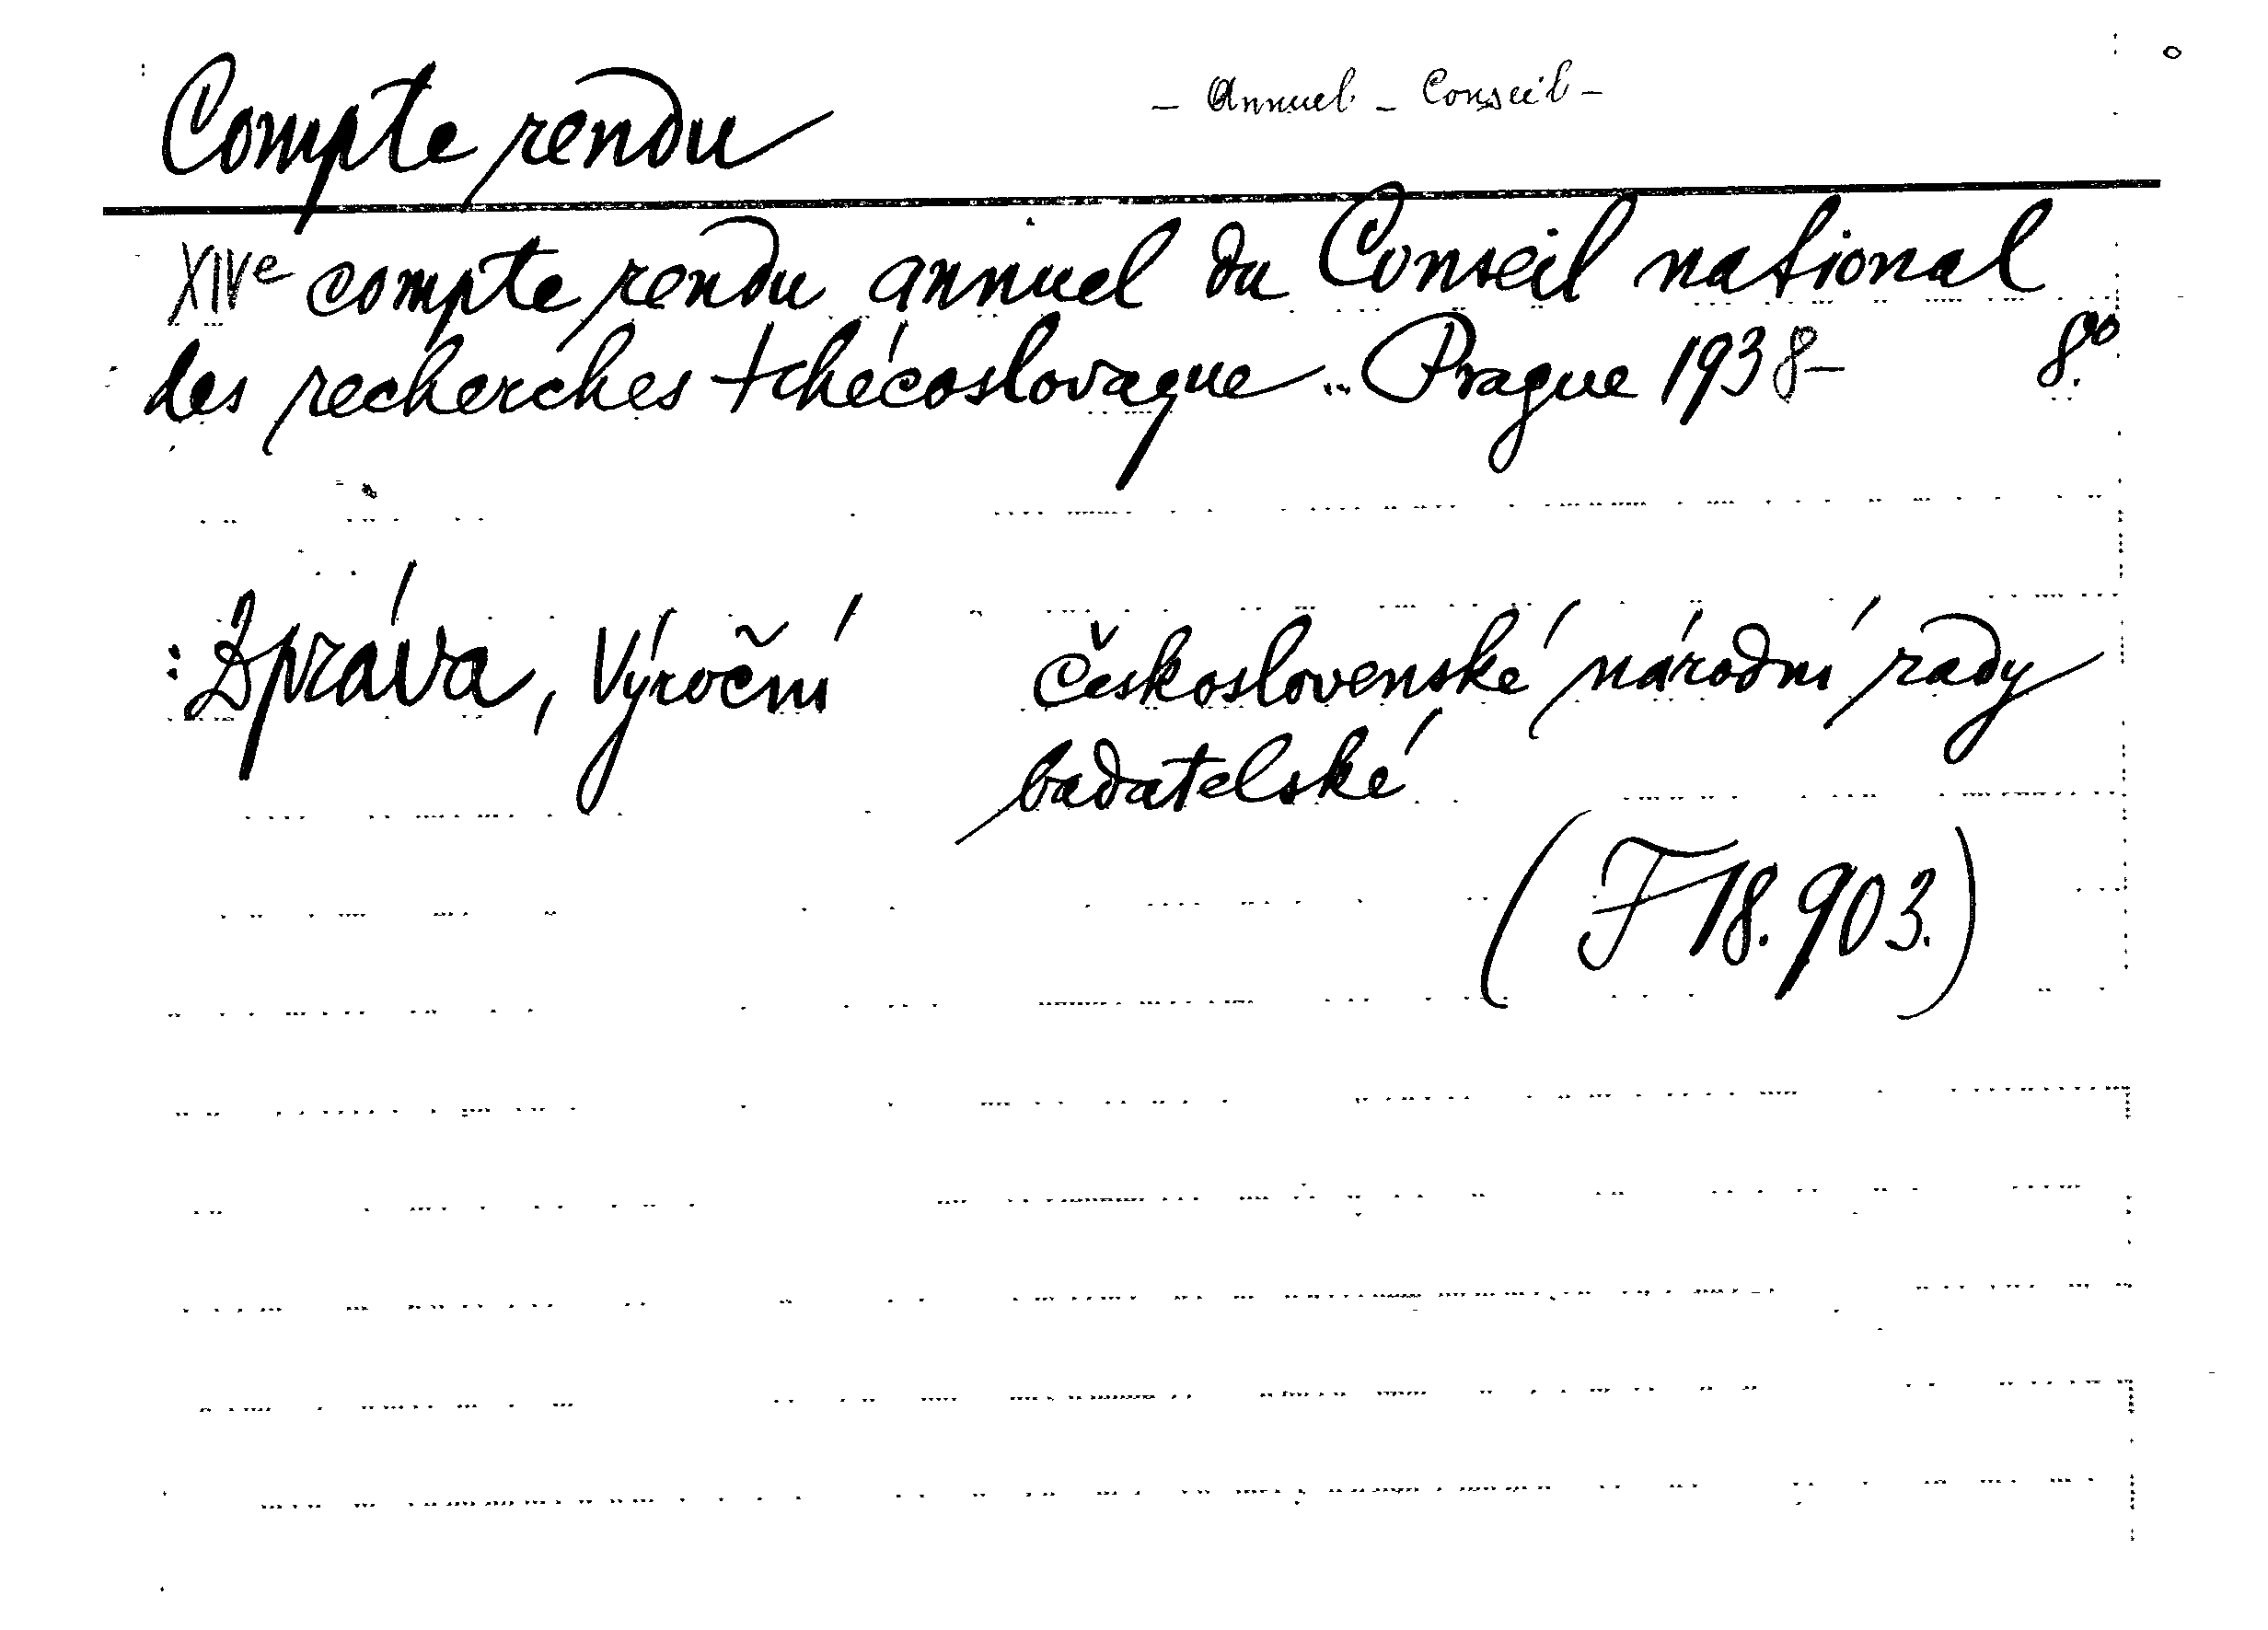 Compte rendu - Annuel - Conseil -
XIVe compte rendu annuel du Conseil national
des recherches tchécoslovaque .. Prague 1938- 8o.
: Zpráva, Výroční československé národní rady
badatelské
(F 18.903.)